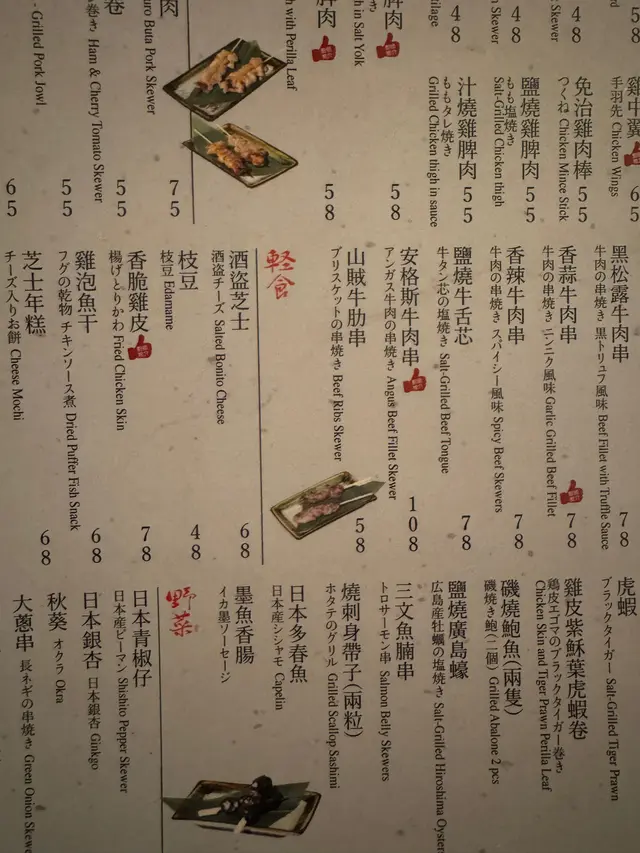 58
Skewer
48
Skewer
48
tilage
脾肉
in Salt Yolk
脾肉
with Perilla Leaf
雞中翼
手羽先 Chicken Wings
65
免治雞肉棒
つくね Chicken Mince Stick
55
鹽燒雞脾肉
もも塩焼き
Salt-Grilled Chicken thigh
55
汁燒雞脾肉
ももタレ焼き
Grilled Chicken thigh in sauce
55
58
58
肉
uro Buta Pork Skewer
75
卷
巻き Ham & Cherry Tomato Skewer
55
55
Grilled Pork Jowl
65
黑松露牛肉串
牛肉の串焼き 黒トリュフ風味 Beef Fillet with Truffle Sauce
78
香蒜牛肉串
牛肉の串焼き ニンニク風味 Garlic Grilled Beef Fillet
78
香辣牛肉串
牛肉の串焼き スパイシー風味 Spicy Beef Skewers
78
鹽燒牛舌芯
牛タン芯の塩焼き Salt-Grilled Beef Tongue
78
安格斯牛肉串
アンガス牛肉の串焼き Angus Beef Fillet Skewer
108
山賊牛肋串
ブリスケットの串焼き Beef Ribs Skewer
58
軽食
酒盜芝士
酒盗チーズ Salted Bonito Cheese
68
枝豆
枝豆 Edamame
48
香脆雞皮
揚げとりかわ Fried Chicken Skin
78
雞泡魚干
フグの乾物 チキンソース煮 Dried Puffer Fish Snack
68
芝士年糕
チーズ入りお餅 Cheese Mochi
68
虎蝦
ブラックタイガー Salt-Grilled Tiger Prawn
雞皮紫穌葉虎蝦卷
鶏皮エゴマのブラックタイガー巻き
Chicken Skin and Tiger Prawn Perilla Leaf
磯燒鮑魚(兩隻)
磯焼き鮑(二個) Grilled Abalone 2 pcs
鹽燒廣島蠔
広島産牡蠣の塩焼き Salt-Grilled Hiroshima Oyster
三文魚腩串
トロサーモン串 Salmon Belly Skewers
燒刺身帶子(兩粒)
ホタテのグリル Grilled Scallop Sashimi
日本多春魚
日本産シシャモ Capelin
墨魚香腸
イカ墨ソーセージ
野菜
日本青椒仔
日本産ピーマン Shishito Pepper Skewer
日本銀杏
日本銀杏 Ginkgo
秋葵
オクラ Okra
大蔥串
長ネギの串焼き Green Onion Skewe